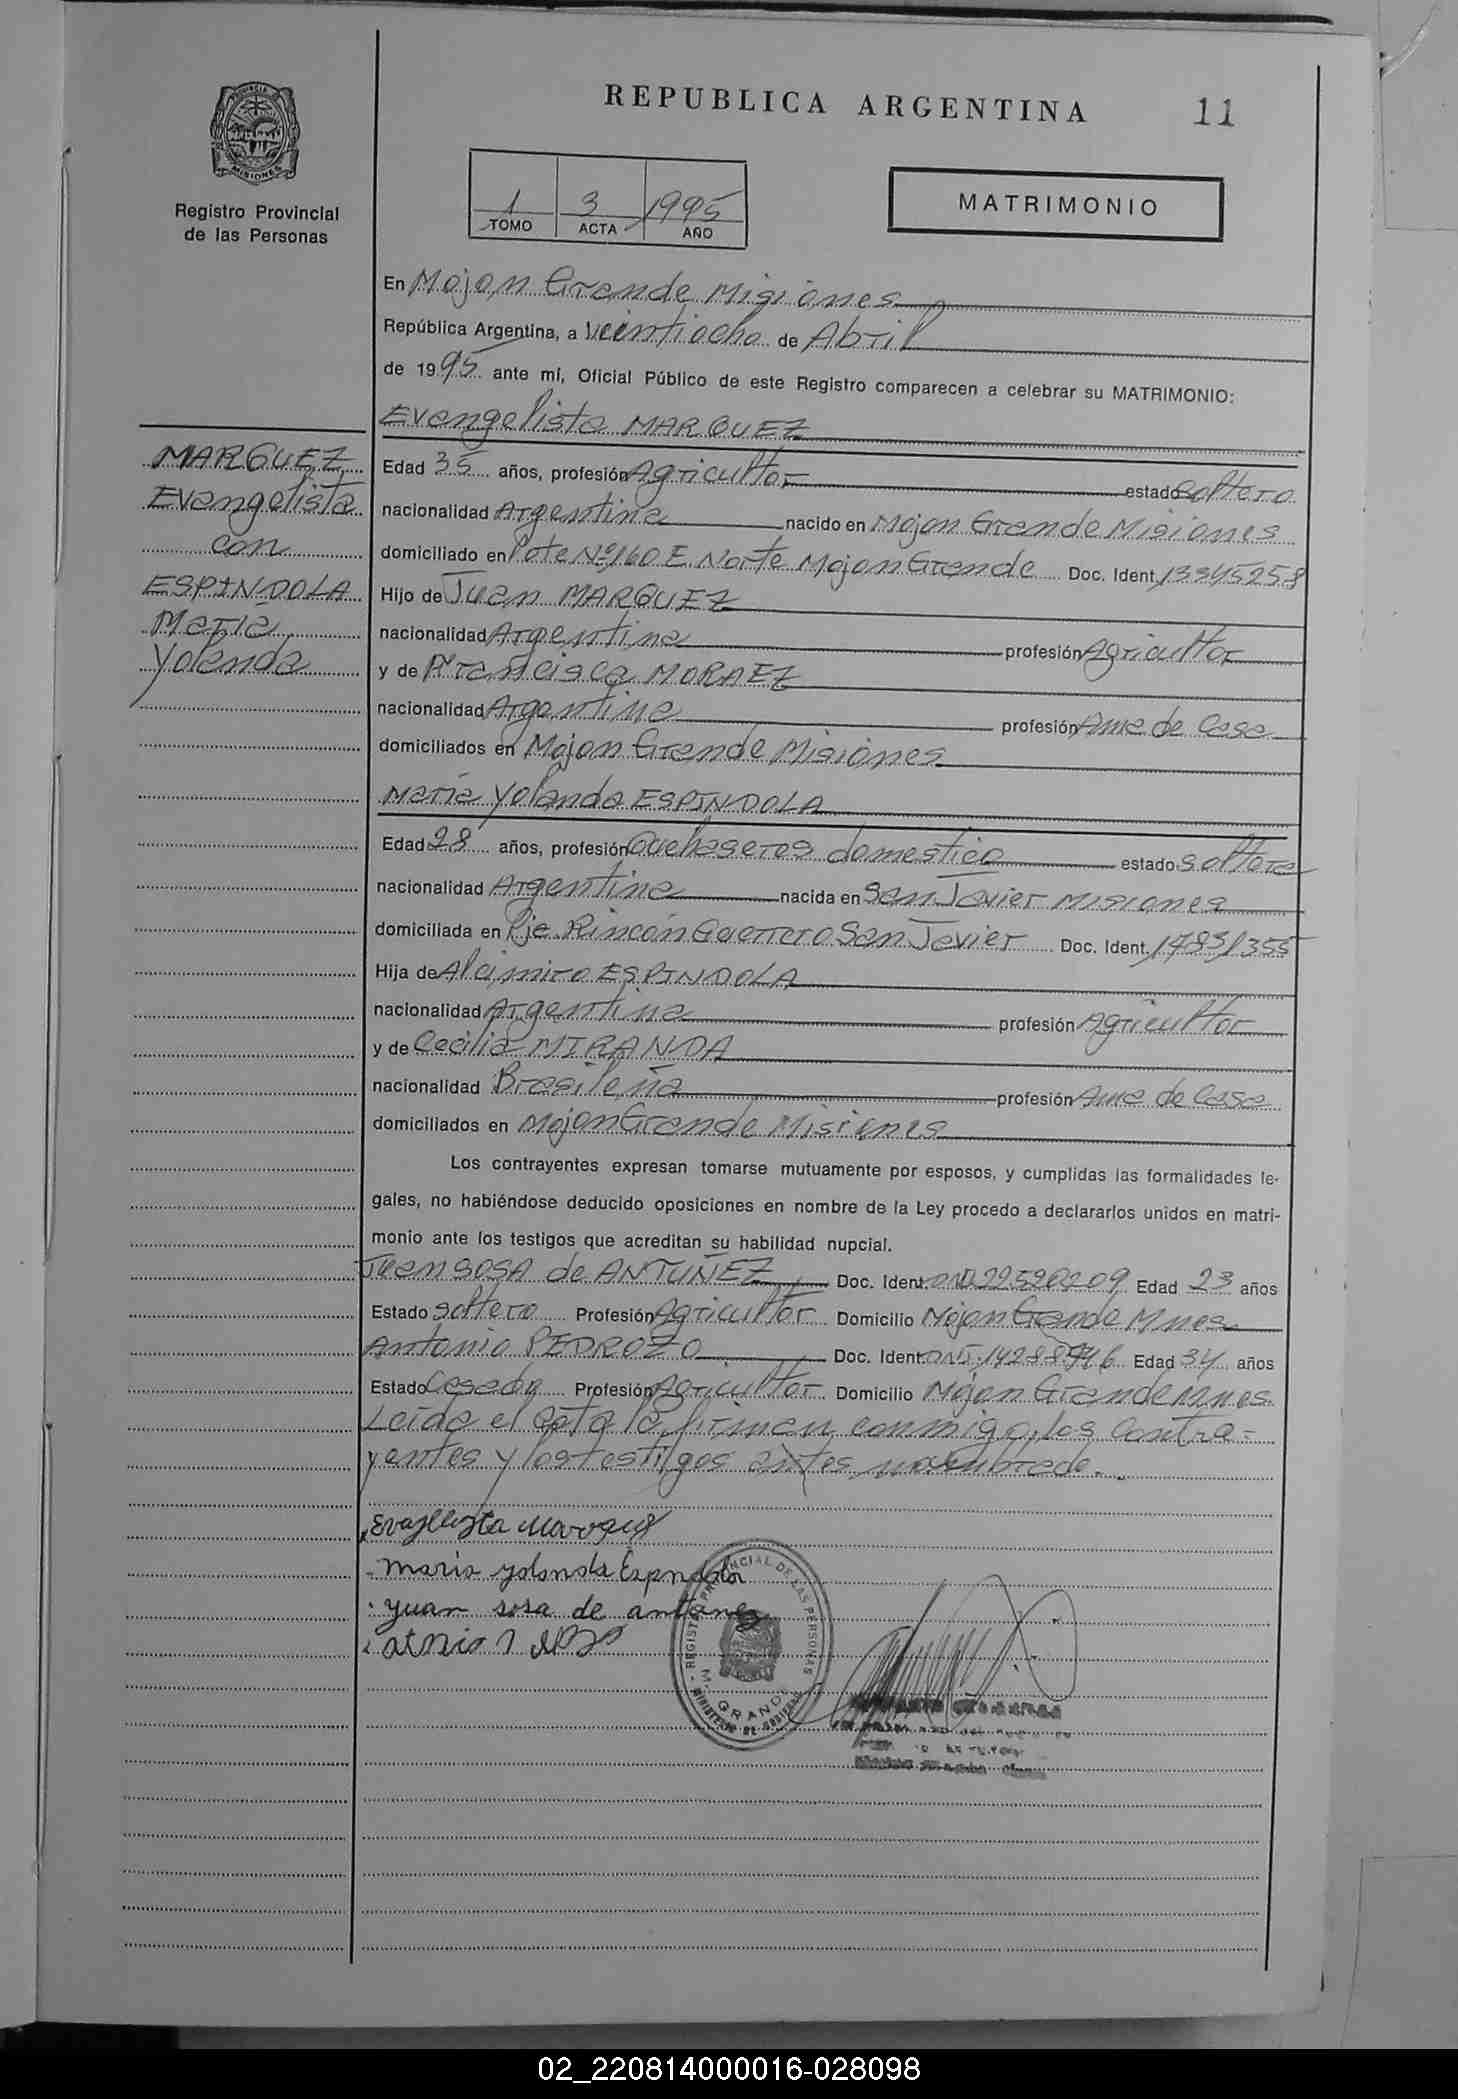 REPUBLICA ARGENTINA 11
PROVINCIA DE MISIONES
Registro Provincial
de las Personas
1 3 1995
TOMO ACTA AÑO
MATRIMONIO
En Mojon Grande Misiones
República Argentina, a veintiocho de Abril
de 1995 ante mí, Oficial Público de este Registro comparecen a celebrar su MATRIMONIO:
Evangelista MARQUEZ
MARQUEZ
Evangelista
con
ESPINDOLA
Maria
Yolanda
Edad 35 años, profesión Agricultor estado soltero
nacionalidad Argentina nacido en Mojon Grande Misiones
domiciliado en Lote Nº160 E Norte Mojon Grande Doc. Ident. 13345258
Hijo de Juan MARQUEZ
nacionalidad Argentina profesión Agricultor
y de Francisca MORAEZ
nacionalidad Argentina profesión Ama de Casa
domiciliados en Mojon Grande Misiones
Maria Yolanda ESPINDOLA
Edad 28 años, profesión Quehaseres domestico estado soltera
nacionalidad Argentina nacida en San Javier Misiones
domiciliada en Pje Rincón Guerrero San Javier Doc. Ident. 17831355
Hija de Alcimiro ESPINDOLA
nacionalidad Argentina profesión Agricultor
y de Cecilia MIRANDA
nacionalidad Brasileña profesión Ama de Casa
domiciliados en Mojon Grande Misiones
Los contrayentes expresan tomarse mutuamente por esposos, y cumplidas las formalidades le-
gales, no habiéndose deducido oposiciones en nombre de la Ley procedo a declararlos unidos en matri-
monio ante los testigos que acreditan su habilidad nupcial.
Juan SOSA de ANTUÑEZ Doc. Ident. 22520209 Edad 23 años
Estado soltero Profesión Agricultor Domicilio Mojon Grande Mnes
Antonio PEDROZO Doc. Ident. Edad 34 años
Estado Casado Profesión Agricultor Domicilio Mojon Grande Mnes.
Leida el acta la firman conmigo, los Contra-
yentes y los testigos antes nombrado.
Evangelista Marquez
Maria yolanda Espndola
yuan sosa de antunez
REGISTRO PROVINCIAL DE LAS PERSONAS
M. GRANDE
MINISTERIO DE GOBIERNO
02_220814000016-028098